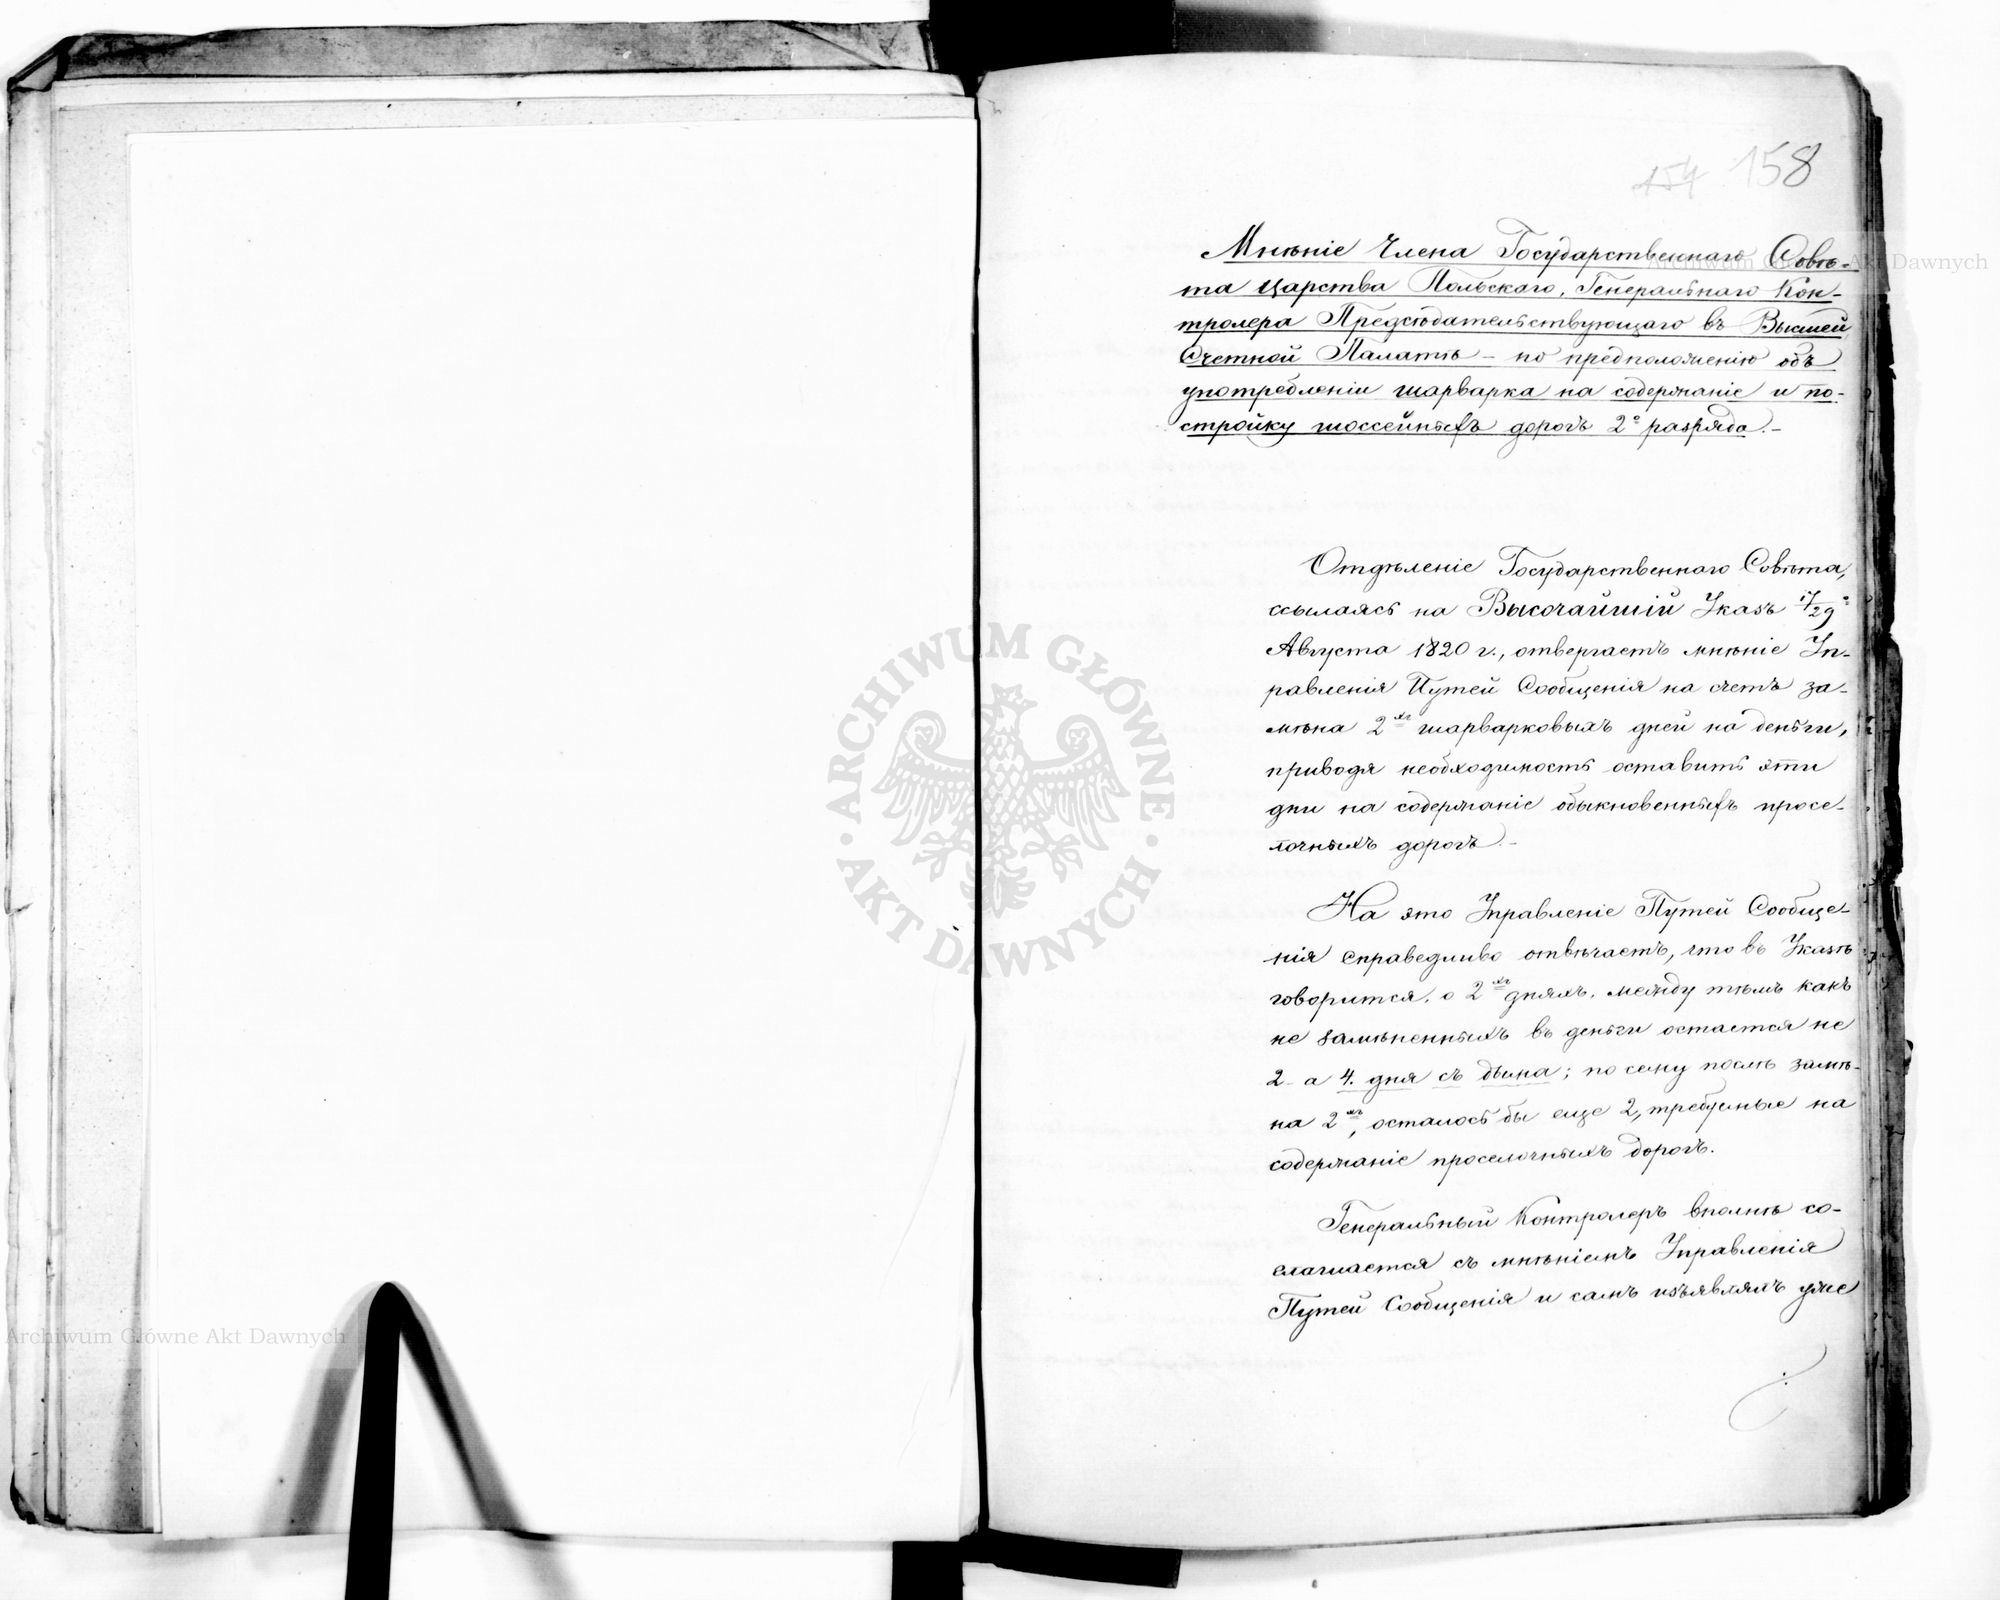 154 158
Мнѣніе Члена Государственнаго Совѣ-
та Царства Польскаго, Генеральнаго Кон-
тролера Предсѣдательствующаго въ Высшей
Счетной Палатѣ – по предположенію объ
употребленіи шарварка на содержаніе и по-
стройку шоссейныхъ дорогъ 2º разряда.–
Отдѣленіе Государственнаго Совѣта,
ссылаясь на Высочайшій Указъ 17/29º
Августа 1820 г., отвергаетъ мнѣніе Уп-
равленія Путей Сообщенія на счетъ за-
мѣна 2хъ шарварковыхъ дней на деньги,
приводя необходимость оставить эти
дни на содержаніе обыкновенныхъ просе-
лочныхъ дорогъ.–
На это Управленіе Путей Сообще-
нія справедливо отвѣчаетъ, что въ Указѣ
говорится, о 2хъ дняхъ, между тѣмъ какъ
не замѣненныхъ въ деньги остается не
2 – а 4. дня съ дыма; по сему послѣ замѣ-
на 2хъ, осталось бы еще 2, требуемые на
содержаніе проселочныхъ дорогъ.
Генеральный Контролеръ вполнѣ со-
глашается съ мнѣніемъ Управленія
Путей Сообщенія и самъ изъявлялъ уже
ARCHIWUM GŁÓWNE
AKT DAWNYCH
Archiwum Główne Akt Dawnych
Archiwum Główne Akt Dawnych